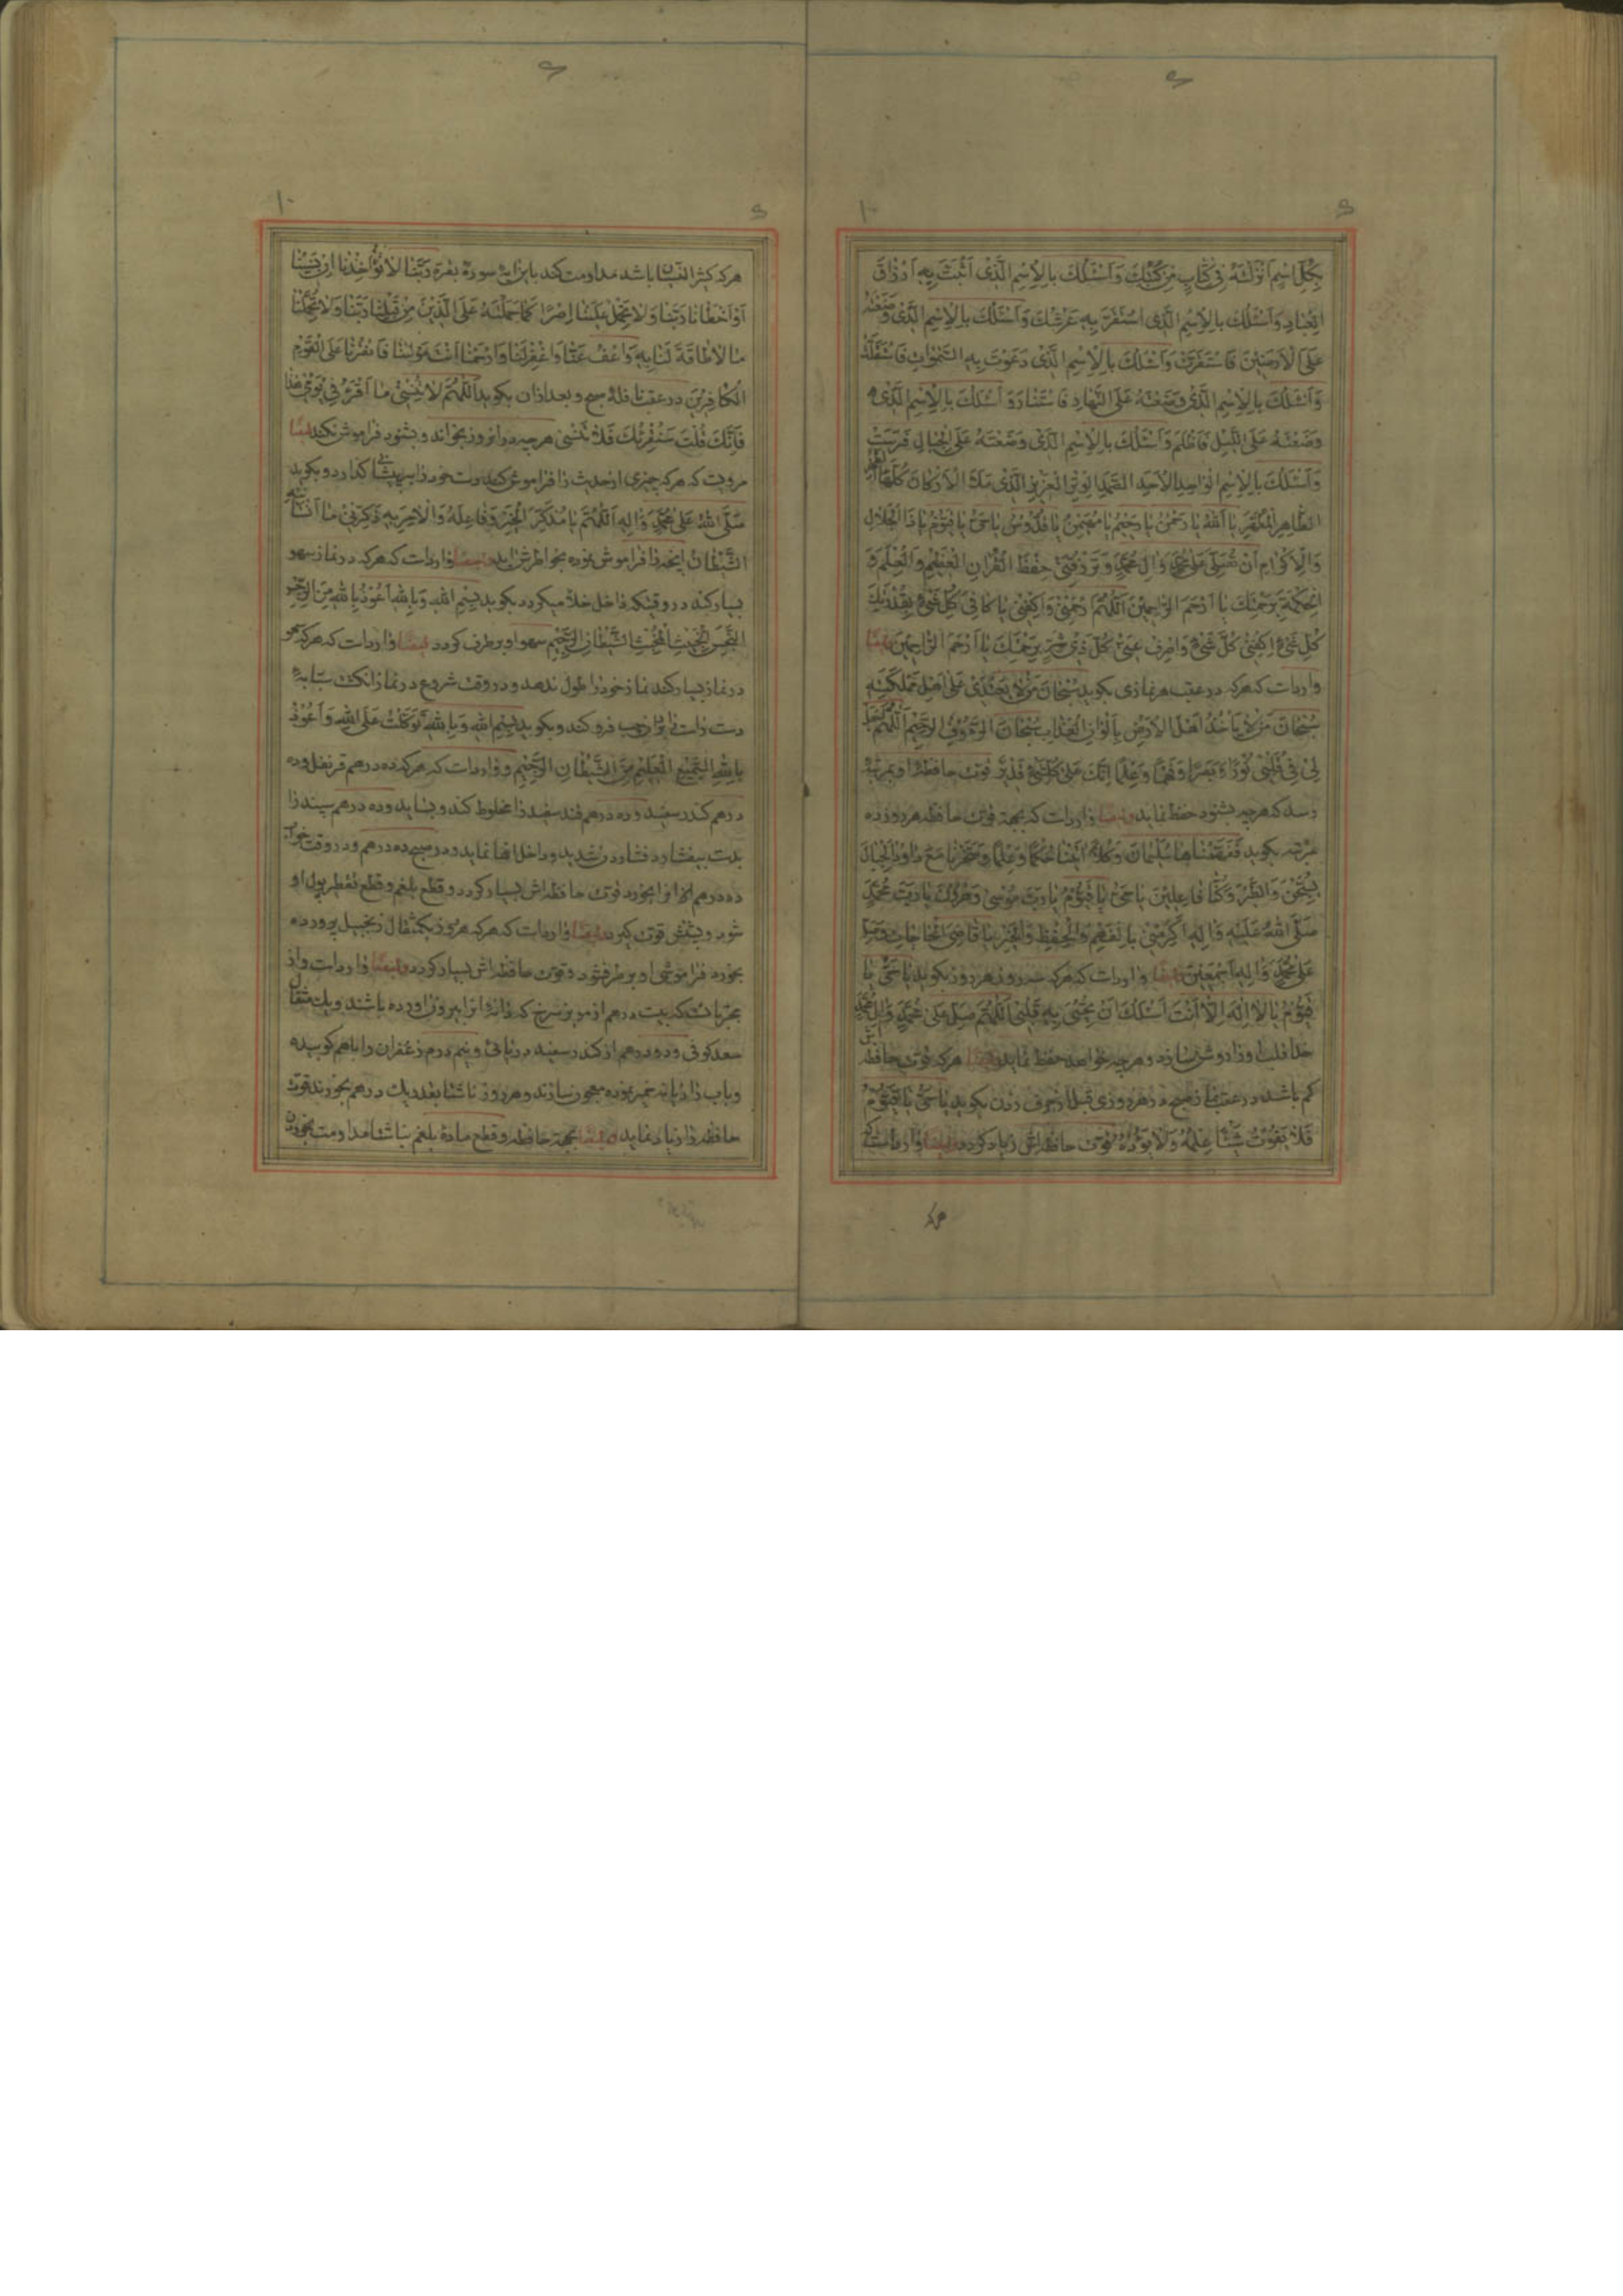 بِكُلِّ اسْمٍ اَنْزَلْتَهُ فى كِتابٍ مِنْ كُتُبِكَ وَاَسْئَلُكَ بِالْاِسْمِ الَّذى اَثْبَتَّ بِهِ اَرْزاقَ
الْعِبادِ وَاَسْئَلُكَ بِالْاِسْمِ الَّذى اسْتَقَرَّ بِهِ عَرْشُكَ وَاَسْئَلُكَ بِالْاِسْمِ الَّذى وَضَعْتَهُ
عَلَى الْاَرَضينَ فَاسْتَقَرَّتْ وَاَسْئَلُكَ بِالْاِسْمِ الَّذى دَعَوْتَ بِهِ السَّمٰواتِ فَاسْتَقَلَّتْ
وَاَسْئَلُكَ بِالْاِسْمِ الَّذى وَضَعْتَهُ عَلَى النَّهارِ فَاسْتَنارَ وَاَسْئَلُكَ بِالْاِسْمِ الَّذى
وَضَعْتَهُ عَلَى اللَّيْلِ فَاَظْلَمَ وَاَسْئَلُكَ بِالْاِسْمِ الَّذى وَضَعْتَهُ عَلَى الْجِبالِ فَرَسَتْ
وَاَسْئَلُكَ بِالْاِسْمِ الْواحِدِ الْاَحَدِ الصَّمَدِ الْوِتْرِ الْعَزيزِ الَّذى مَلَاَ الْاَرْكانَ كُلَّها
الطّاهِرِ الْمُطَهَّرِ يا اَللهُ يا رَحْمٰنُ يا رَحيمُ يا مُهَيْمِنُ يا قُدُّوسُ يا حَىُّ يا قَيُّومُ يا ذَا الْجَلالِ
وَالْاِكْرامِ اَنْ تُصَلِّىَ عَلى مُحَمَّدٍ وَالِ مُحَمَّدٍ وَتَرْزُقَنى حِفْظَ الْقُرْانِ الْعَظيمِ وَالْعِلْمَ وَ
الْحِكْمَةَ بِرَحْمَتِكَ يا اَرْحَمَ الرّاحِمينَ اَللّهُمَّ ارْحَمْنى وَاكْفِنى يا كافى كُلِّ شَىْءٍ بِقُدْرَتِكَ
كُلِّ شَىْءٍ اِكْفِنى كُلَّ شَىْءٍ وَاصْرِفْ عَنّى كُلَّ ذى شَرٍّ بِرَحْمَتِكَ يا اَرْحَمَ الرّاحِمينَ ايضًا
وارداست كه هركه در عقب هر نمازى بكويد سُبْحانَ مَنْ لا يَعْتَدى عَلى اَهْلِ مَمْلَكَتِهِ
سُبْحانَ مَنْ لا يَأْخُذُ اَهْلَ الْاَرْضِ بِاَلْوانِ الْعَذابِ سُبْحانَ الرَّؤُفِ الرَّحيمِ اَللّهُمَّ اجْعَلْ
لى فى قَلْبى نُورًا وَبَصَرًا وَفَهْمًا وَعِلْمًا اِنَّكَ عَلى كُلِّ شَىْءٍ قَديرٌ قوت حافظه او بمرتبهٔ
رسد كه هرچه بشنود حفظ نمايد وايضًا وارداست كه بجهة قوت حافظه هر روز ده
مرتبه بكويد فَفَهَّمْناها سُلَيْمانَ وَكُلًّا اتَيْنا حُكْمًا وَعِلْمًا وَسَخَّرْنا مَعَ داوُدَ الْجِبالَ
يُسَبِّحْنَ وَالطَّيْرَ وَكُنّا فاعِلينَ يا حَىُّ يا قَيُّومُ يا رَبَّ مُوسى وَهرُونَ يا رَبَّ مُحَمَّدٍ
صَلَّى اللهُ عَلَيْهِ وَالِهِ اَكْرِمْنى بِالْفَهْمِ وَالْحِفْظِ يا قاضِىَ الْحاجاتِ
عَلى مُحَمَّدٍ وَالِهِ اَجْمَعينَ ايضًا وارداست كه هركه هر روز بكويد يا حَىُّ يا
قَيُّومُ يا لا اِلهَ اِلّا اَنْتَ اَسْئَلُكَ اَنْ تُحْيِىَ بِهِ قَلْبى اَللّهُمَّ صَلِّ عَلى مُحَمَّدٍ وَالِ مُحَمَّدٍ
خدا قلب او را روشن سازد و هرچه خواهد حفظ نمايد وايضًا هركه قوت حافظه
كم باشد در عقب نماز صبح در هر روزى قبل از حرف زدن بكويد يا حَىُّ يا قَيُّومُ
فَلا يَفُوتُ شَيْئًا عِلْمُهُ وَلا يَؤُدُهُ قوت حافظه اش زياد كردد وايضًا وارداست كه
هركه
هركه كثير النسيان باشد مداومت كند باين ايهٔ سورهٔ بقره رَبَّنا لا تُؤاخِذْنا اِنْ نَسينا
اَوْ اَخْطَأْنا رَبَّنا وَلا تَحْمِلْ عَلَيْنا اِصْرًا كَما حَمَلْتَهُ عَلَى الَّذينَ مِنْ قَبْلِنا رَبَّنا وَلا تُحَمِّلْنا
ما لا طاقَةَ لَنا بِهِ وَاعْفُ عَنّا وَاغْفِرْ لَنا وَارْحَمْنا اَنْتَ مَوْلينا فَانْصُرْنا عَلَى الْقَوْمِ
الْكافِرينَ در عقب نافلهٔ صبح و بعد ازان بكويد اَللّهُمَّ لا تُنْسِنى ما اَقْرَءُ فى يَوْمى هذا
فَاِنَّكَ قُلْتَ سَنُقْرِئُكَ فَلا تَنْسى هرچه در ان روز بخواند و بشنود فراموش نكند ايضًا
مرويست كه هركه چيزى از حديث را فراموش كند دست خود را بر پيشانى كذارد و بكويد
صَلَّى اللهُ عَلى مُحَمَّدٍ وَالِهِ اَللّهُمَّ يا مُذَكِّرَ الْخَيْرِ وَفاعِلَهُ وَالْامِرَ بِهِ ذَكِّرْنى ما اَنْسانيهِ
الشَّيْطانُ انچه را فراموش نموده بخاطرش ايد وايضًا وارداست كه هركه در نماز سهو
بسيار كند در وقتيكه داخل خلا ميكردد بكويد بِسْمِ اللهِ وَبِاللهِ اَعُوذُ بِاللهِ مِنَ الرِّجْسِ
النَّجِسِ الْخَبيثِ الْمُخْبِثِ الشَّيْطانِ الرَّجيمِ سهو او برطرف كردد ايضًا وارداست كه هركه سهو
در نماز بسيار كند نماز خود را طول ندهد و در وقت شروع در نماز انكشت سبابهٔ
دست راست را بران چپ فرو كند و بكويد بِسْمِ اللهِ وَبِاللهِ تَوَكَّلْتُ عَلَى اللهِ وَاَعُوذُ
بِاللهِ السَّميعِ الْعَليمِ مِنَ الشَّيْطانِ الرَّجيمِ و وارداست كه هركه ده درهم قرنفل و ده
درهم كندر سفيد و ده درهم قند سفيد را مخلوط كند و بسايد و ده درهم سپند را
بدست بيفشارد فشاردن شديد و داخل انها نمايد و در صبح ده درهم و در وقت خواب
ده درهم انرا بخورد قوت حافظه اش بسيار كردد و قطع بلغم و قطع تقطير بول او
شود و پشتش قوت كيرد وايضًا وارداست كه هركه هر روز يكمثقال زنجبيل پرورده
بخورد فراموشى او برطرف شود و قوت حافظه اش بسيار كردد وايضًا وارداست و از
مجرباتست كه بيست درهم از مويز سرخ كه دانهٔ انرا بيرون اورده باشند و يك مثقال
سعد كوفى و دو درهم از كندر سفيد دريائى و نيم درم زعفران را باهم كوبيده
وباب رازيانه خمير نموده معجون سازند و هر روز ناشتا بقدر يك درهم بخورند قوت
حافظه را زياد نمايد وايضًا بجهة حافظه و قطع مادهٔ بلغم ناشتا مداومت بخوردن